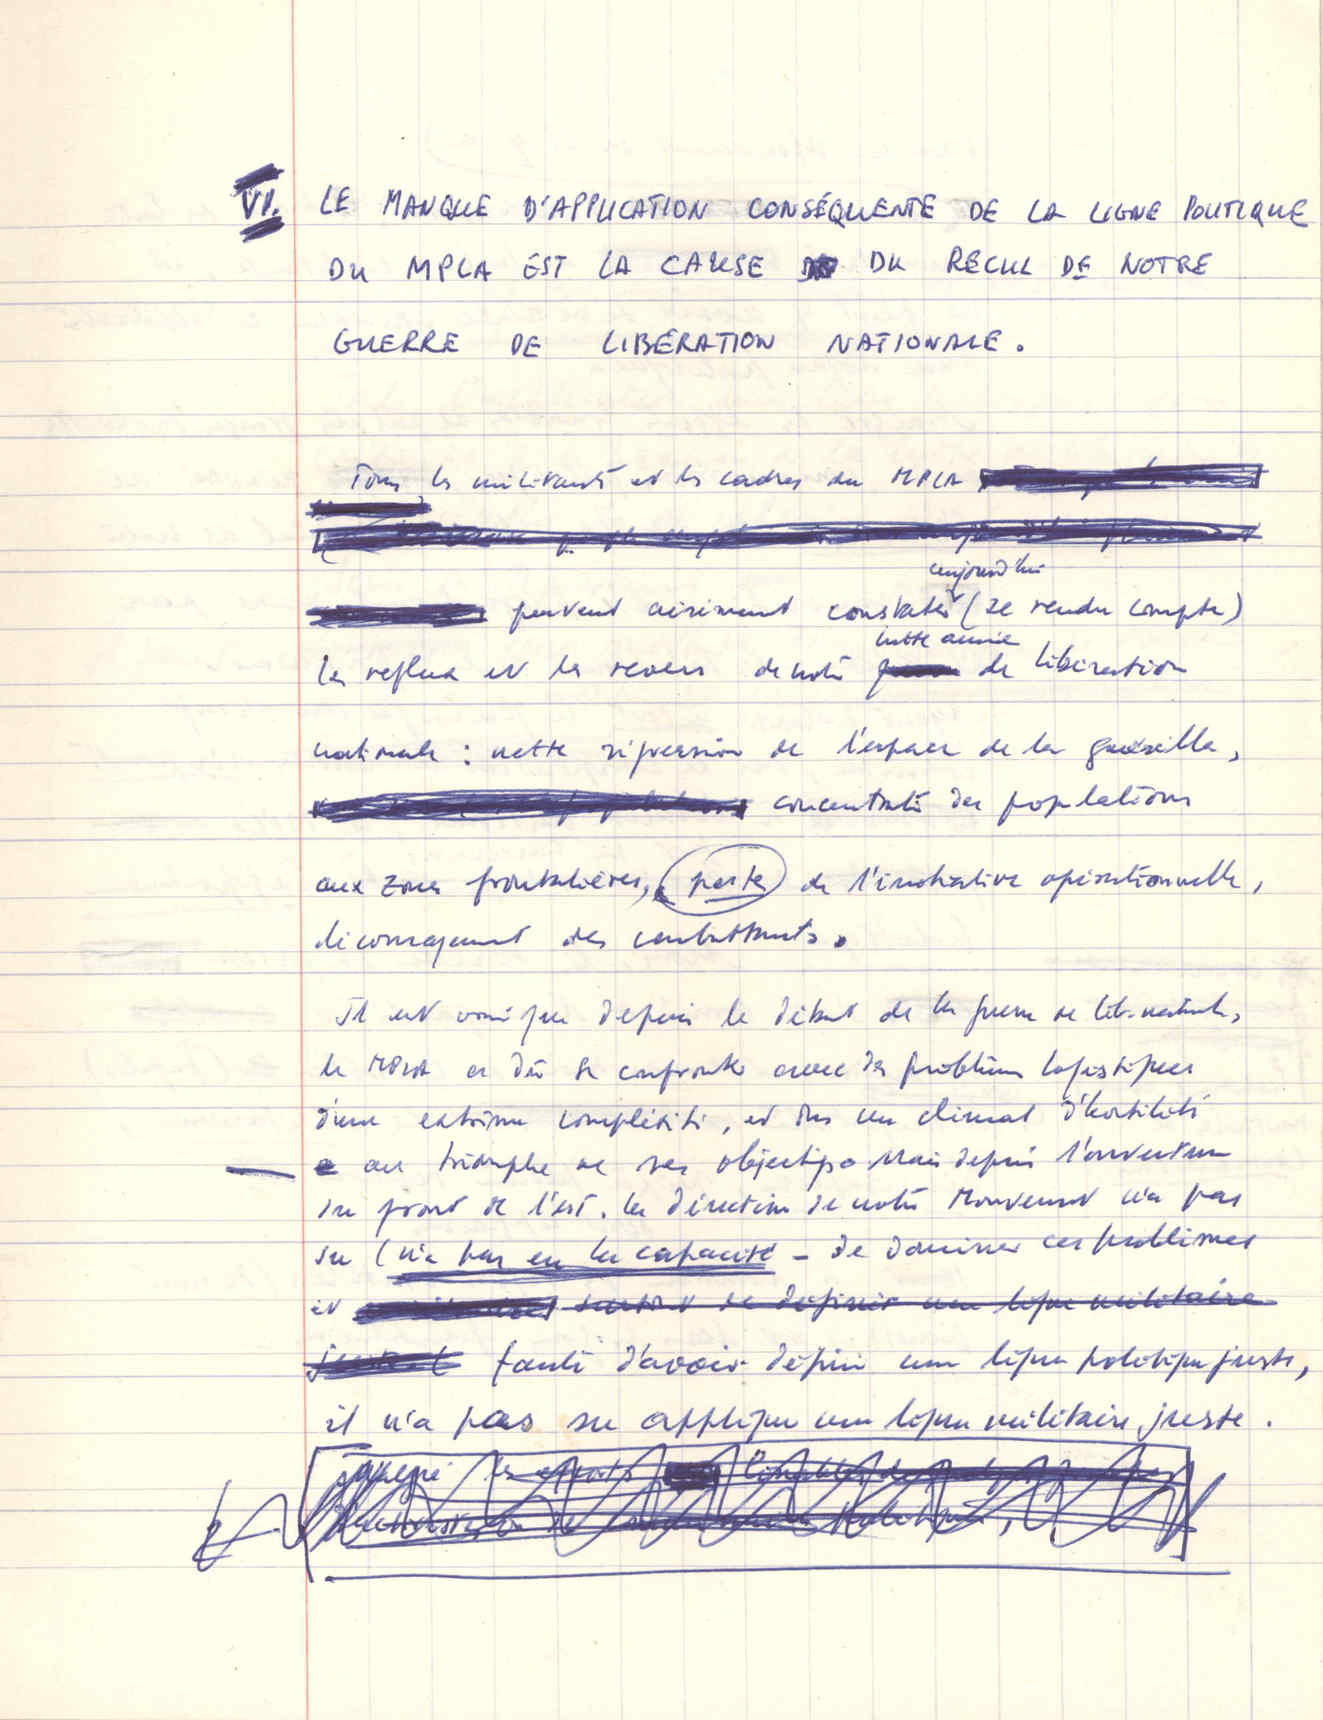 VI. LE MANQUE D'APPLICATION CONSÉQUENTE DE LA LIGNE POLITIQUE
DU MPLA EST LA CAUSE DU RECUL DE NOTRE
GUERRE DE LIBÉRATION NATIONALE.
Tous les militants et les cadres du MPLA
aujourd'hui
peuvent aisément constater (se rendre compte)
lutte armée
le reflux et les revers de notre de libération
nationale : nette régression de l'espace de la guérilla,
des populations
aux zones frontalières, perte de l'initiative opérationnelle,
découragement des combattants.
Il est vrai que depuis le début de la guerre de lib. nationale,
le MPLA a dû se confronter avec des problèmes logistiques
d'une extrême complexité, et dans un climat d'hostilité
au triomphe de ses objectifs. Mais depuis l'ouverture
du front de l'est, la direction de notre Mouvement n'a pas
su (n'a pas eu la capacité - de dominer ces problèmes
et surtout de définir une ligne militaire
faute d'avoir défini une ligne politique juste,
il n'a pas su appliquer une ligne militaire juste.